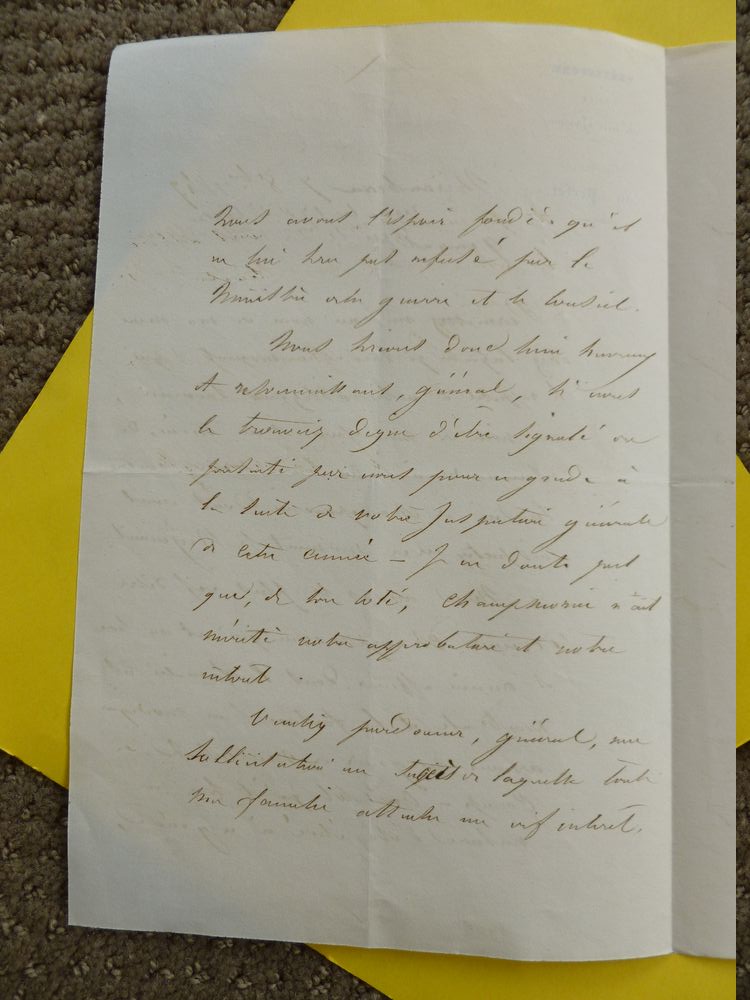 Nous avons l'espoir fondé qu'il
ne lui sera pas refusé par le
Ministère de la guerre et le Conseil.
Nous serions donc bien heureux
et reconnaissant, général, si vous
le trouviez digne d'être signalé ou
présenté par vous pour un grade à
la suite de votre Inspection générale
de cette année — Je ne doute pas
que, de son côté, Championnie n'ait
mérité votre approbation et votre
intérêt.
Veuillez pardonner, général, ma
sollicitation au sujet de laquelle toute
ma famille attache un vif intérêt.